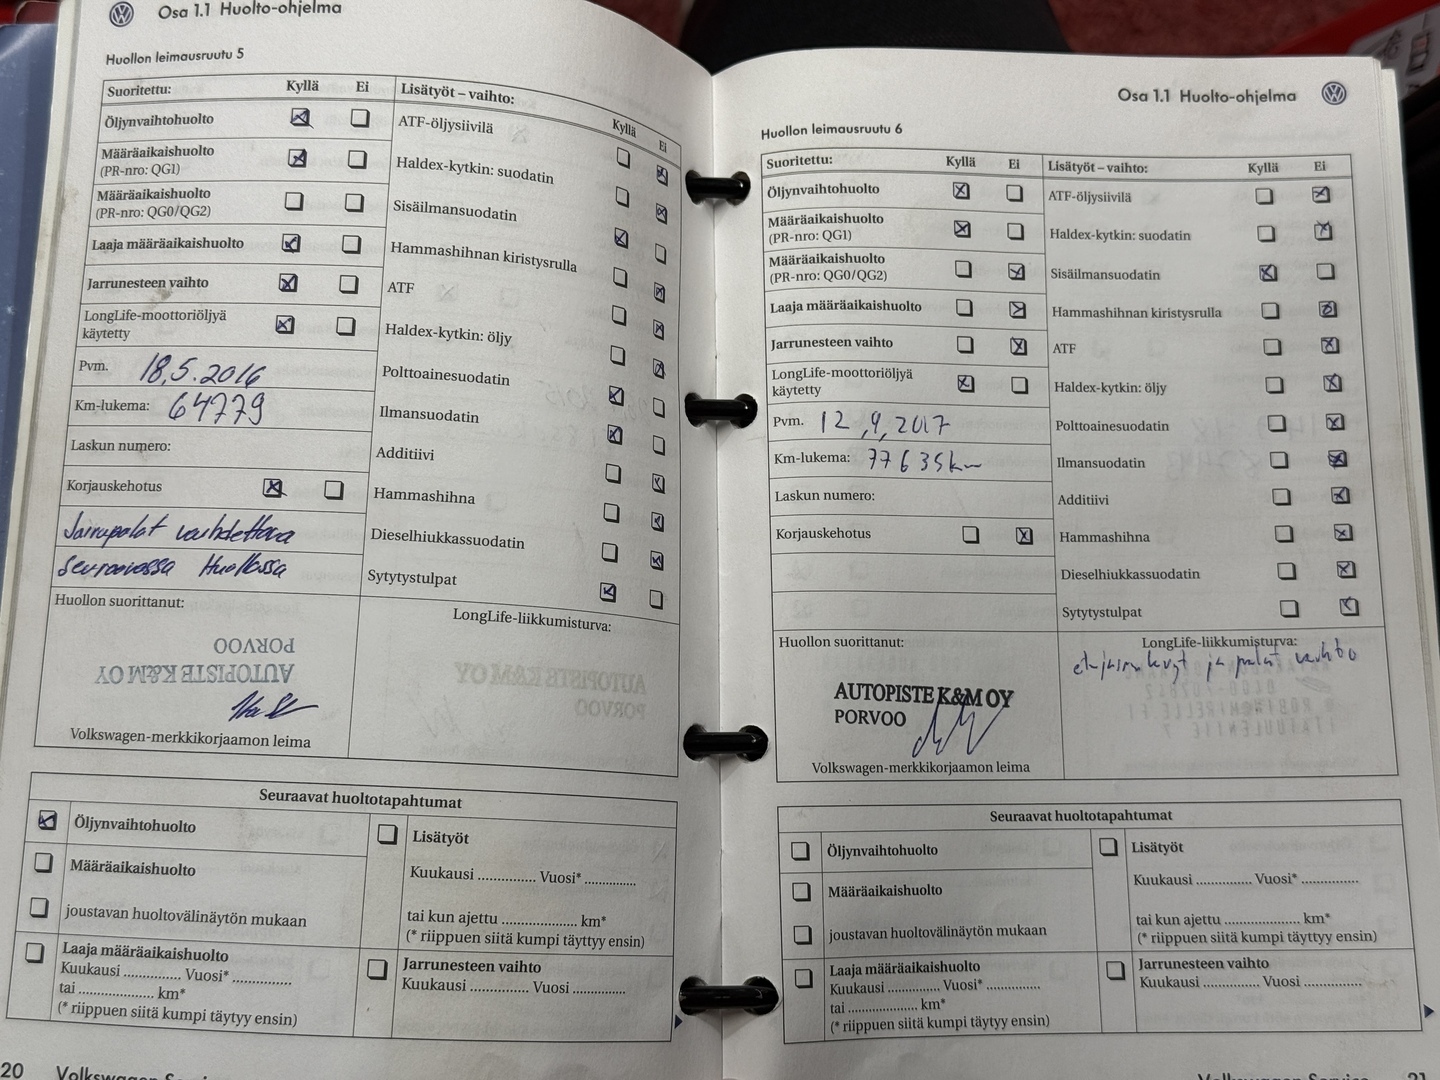 Osa 1.1 Huolto-ohjelma
Huollon leimausruutu 5
Suoritettu: Kyllä Ei
Öljynvaihtohuolto
Määräaikaishuolto
(PR-nro: QG1)
Määräaikaishuolto
(PR-nro: QG0/QG2)
Laaja määräaikaishuolto
Jarrunesteen vaihto
LongLife-moottoriöljyä
käytetty
Pvm. 18.5.2016
Km-lukema: 64779
Laskun numero:
Korjauskehotus
Jarrupalat vaihdettava
seuraavassa Huollossa
Lisätyöt – vaihto: Kyllä Ei
ATF-öljysiivilä
Haldex-kytkin: suodatin
Sisäilmansuodatin
Hammashihnan kiristysrulla
ATF
Haldex-kytkin: öljy
Polttoainesuodatin
Ilmansuodatin
Additiivi
Hammashihna
Dieselhiukkassuodatin
Sytytystulpat
Huollon suorittanut:
AUTOPISTE K&M OY
PORVOO
Volkswagen-merkkikorjaamon leima
LongLife-liikkumisturva:
Seuraavat huoltotapahtumat
Öljynvaihtohuolto
Määräaikaishuolto
joustavan huoltovälinäytön mukaan
Laaja määräaikaishuolto
Kuukausi .............. Vuosi* ..............
tai .................... km*
(* riippuen siitä kumpi täytyy ensin)
Lisätyöt
Kuukausi .............. Vuosi* ..............
tai kun ajettu .................. km*
(* riippuen siitä kumpi täyttyy ensin)
Jarrunesteen vaihto
Kuukausi .............. Vuosi ..............
20 Volkswagen Servi
Osa 1.1 Huolto-ohjelma
Huollon leimausruutu 6
Suoritettu: Kyllä Ei
Öljynvaihtohuolto
Määräaikaishuolto
(PR-nro: QG1)
Määräaikaishuolto
(PR-nro: QG0/QG2)
Laaja määräaikaishuolto
Jarrunesteen vaihto
LongLife-moottoriöljyä
käytetty
Pvm. 12,9,2017
Km-lukema: 77635km
Laskun numero:
Korjauskehotus
Lisätyöt – vaihto: Kyllä Ei
ATF-öljysiivilä
Haldex-kytkin: suodatin
Sisäilmansuodatin
Hammashihnan kiristysrulla
ATF
Haldex-kytkin: öljy
Polttoainesuodatin
Ilmansuodatin
Additiivi
Hammashihna
Dieselhiukkassuodatin
Sytytystulpat
Huollon suorittanut:
AUTOPISTE K&M OY
PORVOO
Volkswagen-merkkikorjaamon leima
LongLife-liikkumisturva:
ja palat vaihto
Seuraavat huoltotapahtumat
Öljynvaihtohuolto
Määräaikaishuolto
joustavan huoltovälinäytön mukaan
Laaja määräaikaishuolto
Kuukausi .............. Vuosi* ..............
tai .................... km*
(* riippuen siitä kumpi täytyy ensin)
Lisätyöt
Kuukausi .............. Vuosi* ..............
tai kun ajettu .................. km*
(* riippuen siitä kumpi täyttyy ensin)
Jarrunesteen vaihto
Kuukausi .............. Vuosi ..............
Volkswagen Service 21